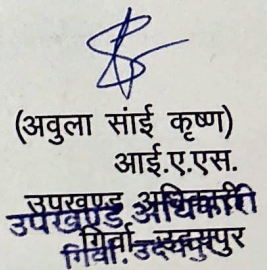 (अवुला सांई कृष्ण)
आई.ए.एस.
उपखण्ड अधिकारी
उपखण्ड अधिकारी
गिर्वा, उदयपुर
गिर्वा. उदयपुर